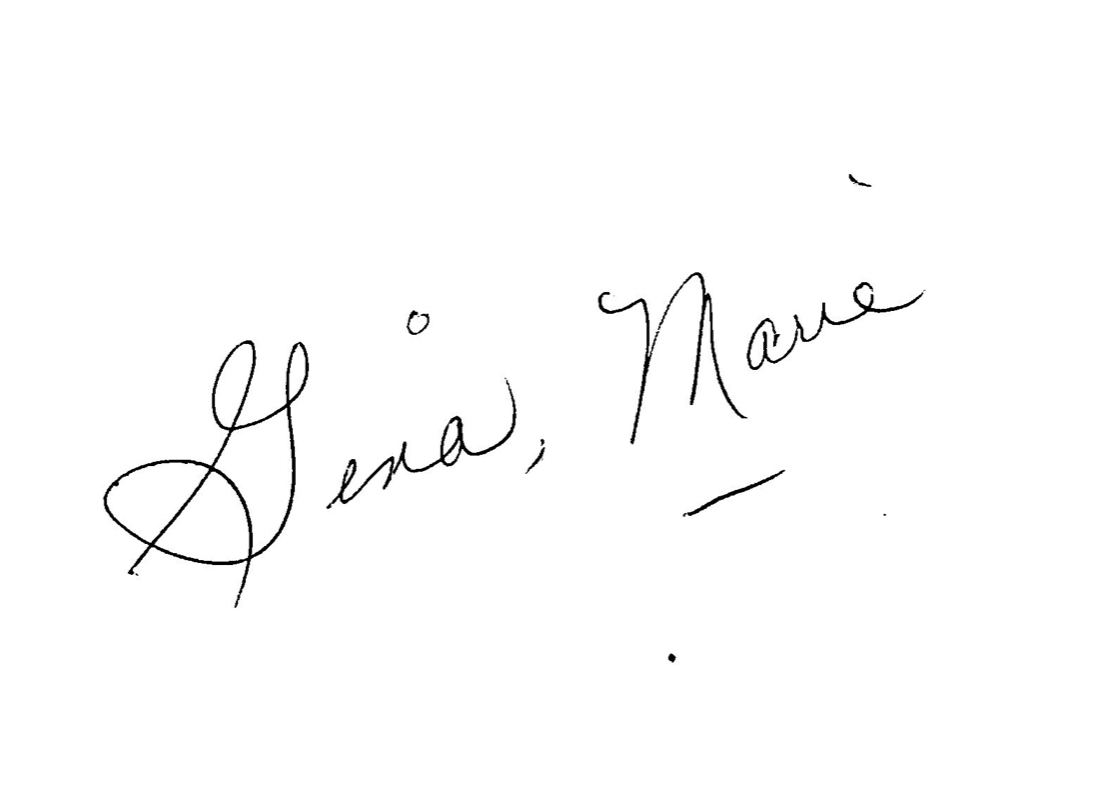 Gina, Marie